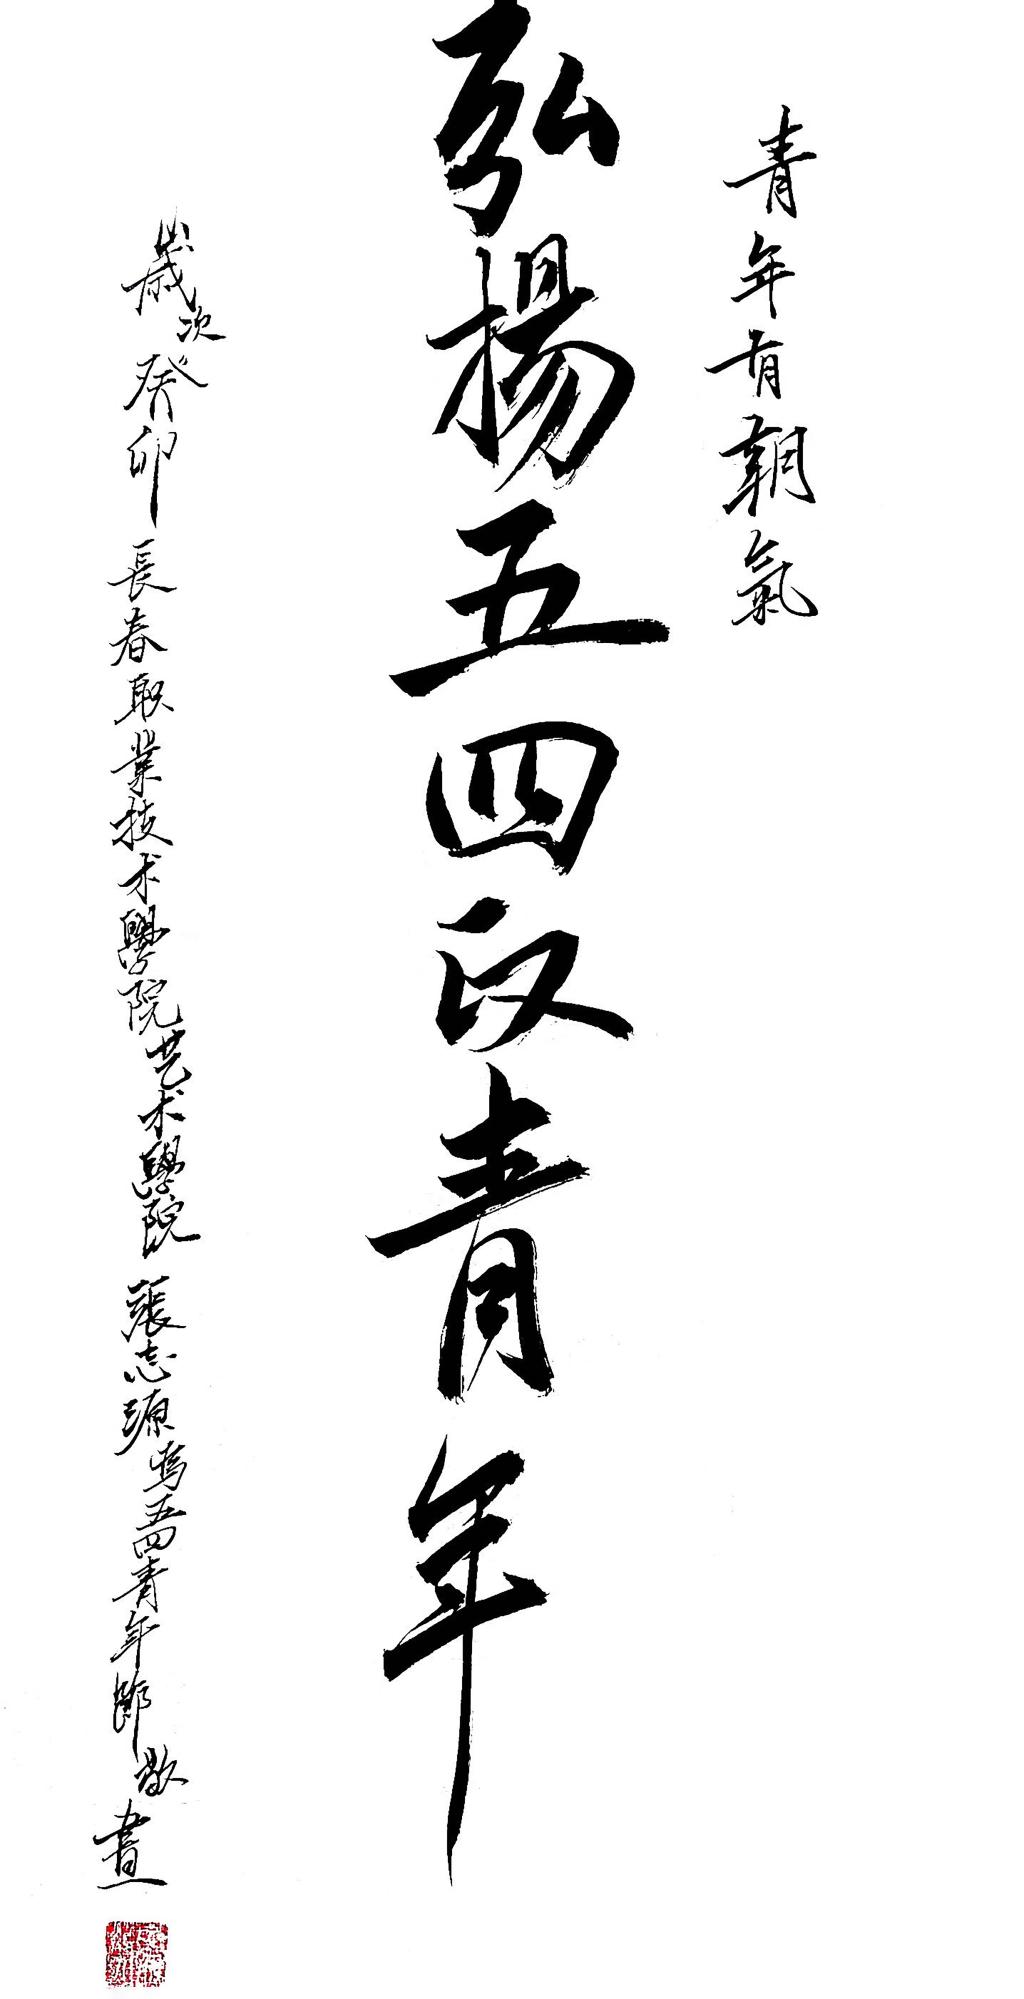 青年有朝氣
弘揚五四青年
歲次癸卯長春职業技术學院艺术學院張志源為五四青年節敬畫